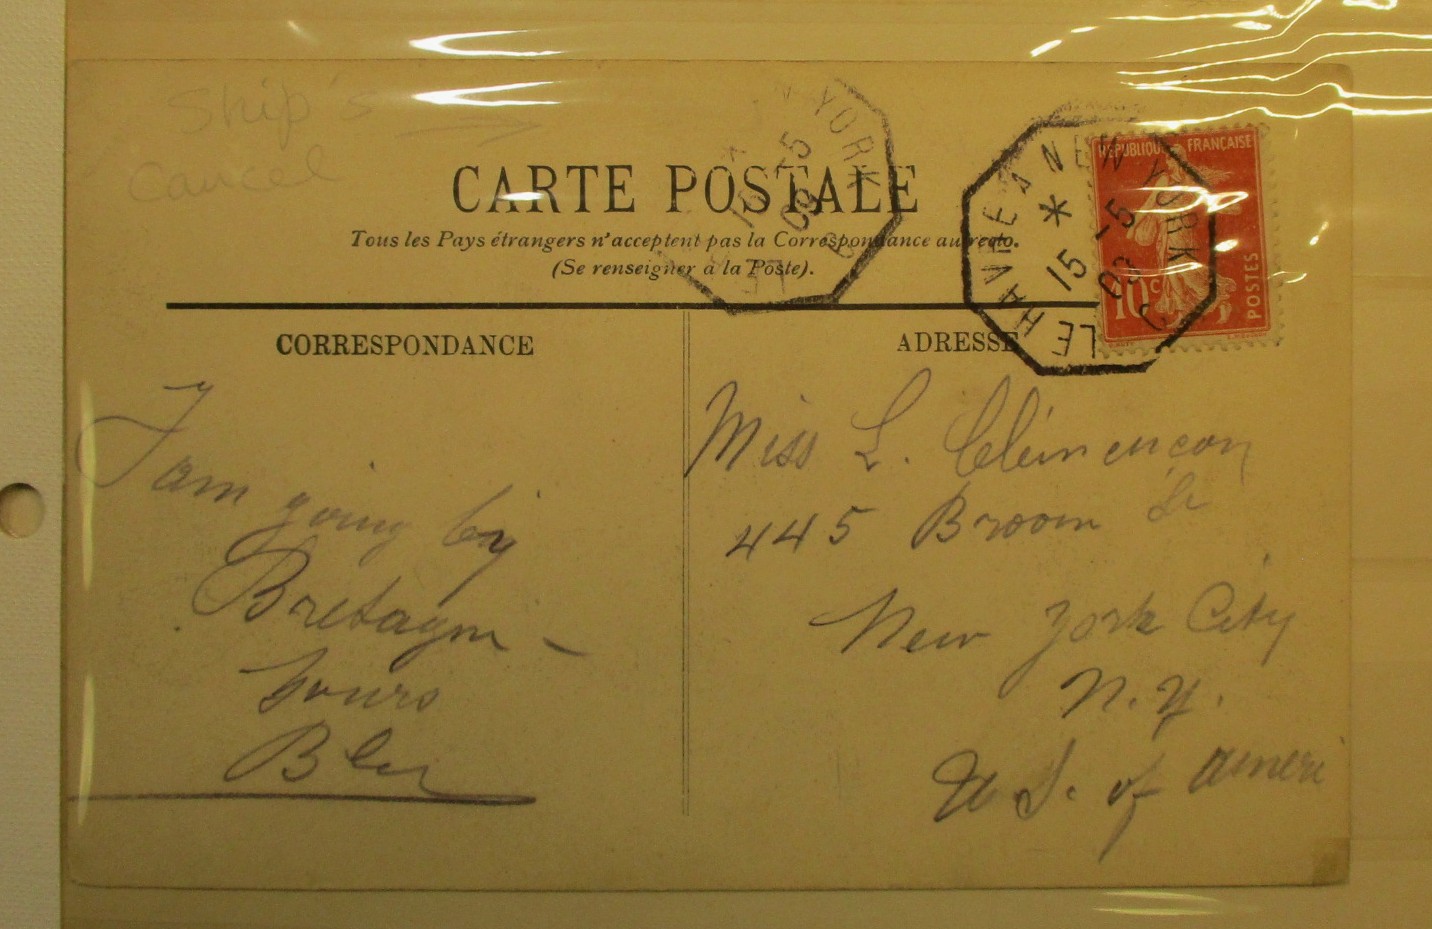 Ship's
Cancel
CARTE POSTALE
Tous les Pays étrangers n'acceptent pas la Correspondance au recto.
(Se renseigner à la Poste).
YORK
15 -5
09
LE
B
LE HAVRE A NEW YORK
15 -5
09
RÉPUBLIQUE FRANÇAISE
10c
POSTES
CORRESPONDANCE
ADRESSE
I am going by
Bretagn -
yours
Miss L. Clémencon
445 Broom St
New York City
N.Y.
U S. of Ameri